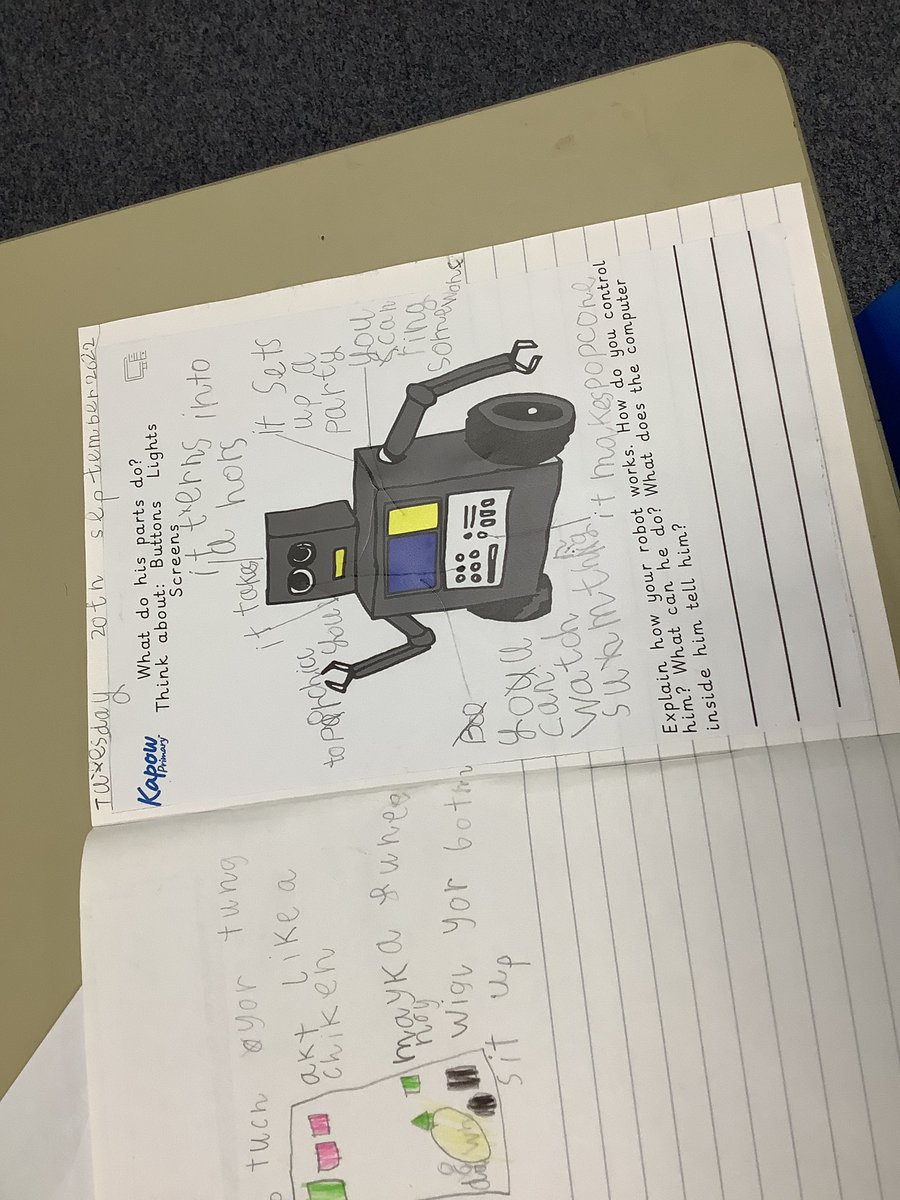 Tuesday 20th September 2022
Kapow
Primary
What do his parts do?
Think about: Buttons Lights
Screens
it terns into
a hors
it takes
you
it sets
up a
party
You
can
ring
somewone
You
can
watch
it makes popcone
Explain how your robot works. How do you control
him? What can he do? What does the computer
inside him tell him?
tuch yor tung
akt like a
chiken
mayk a
noy
wigl yor botm
sit up